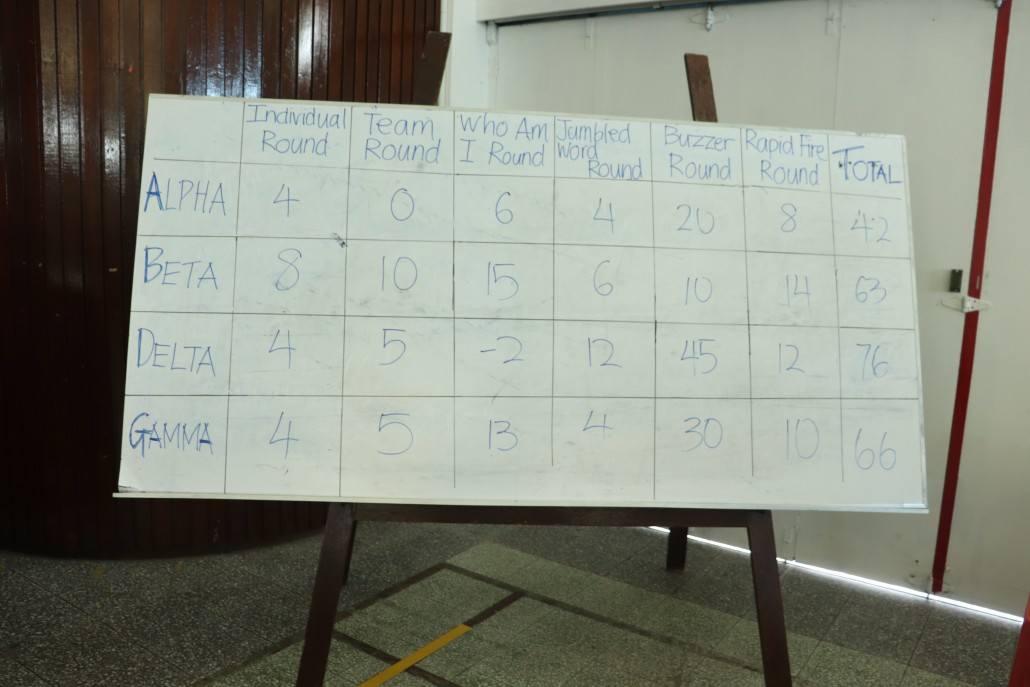 Individual Round Team Round Who Am I Round Jumbled Word Round Buzzer Round Rapid Fire Round TOTAL
ALPHA 4 0 6 4 20 8 42
BETA 8 10 15 6 10 14 63
DELTA 4 5 -2 12 45 12 76
GAMMA 4 5 13 4 30 10 66